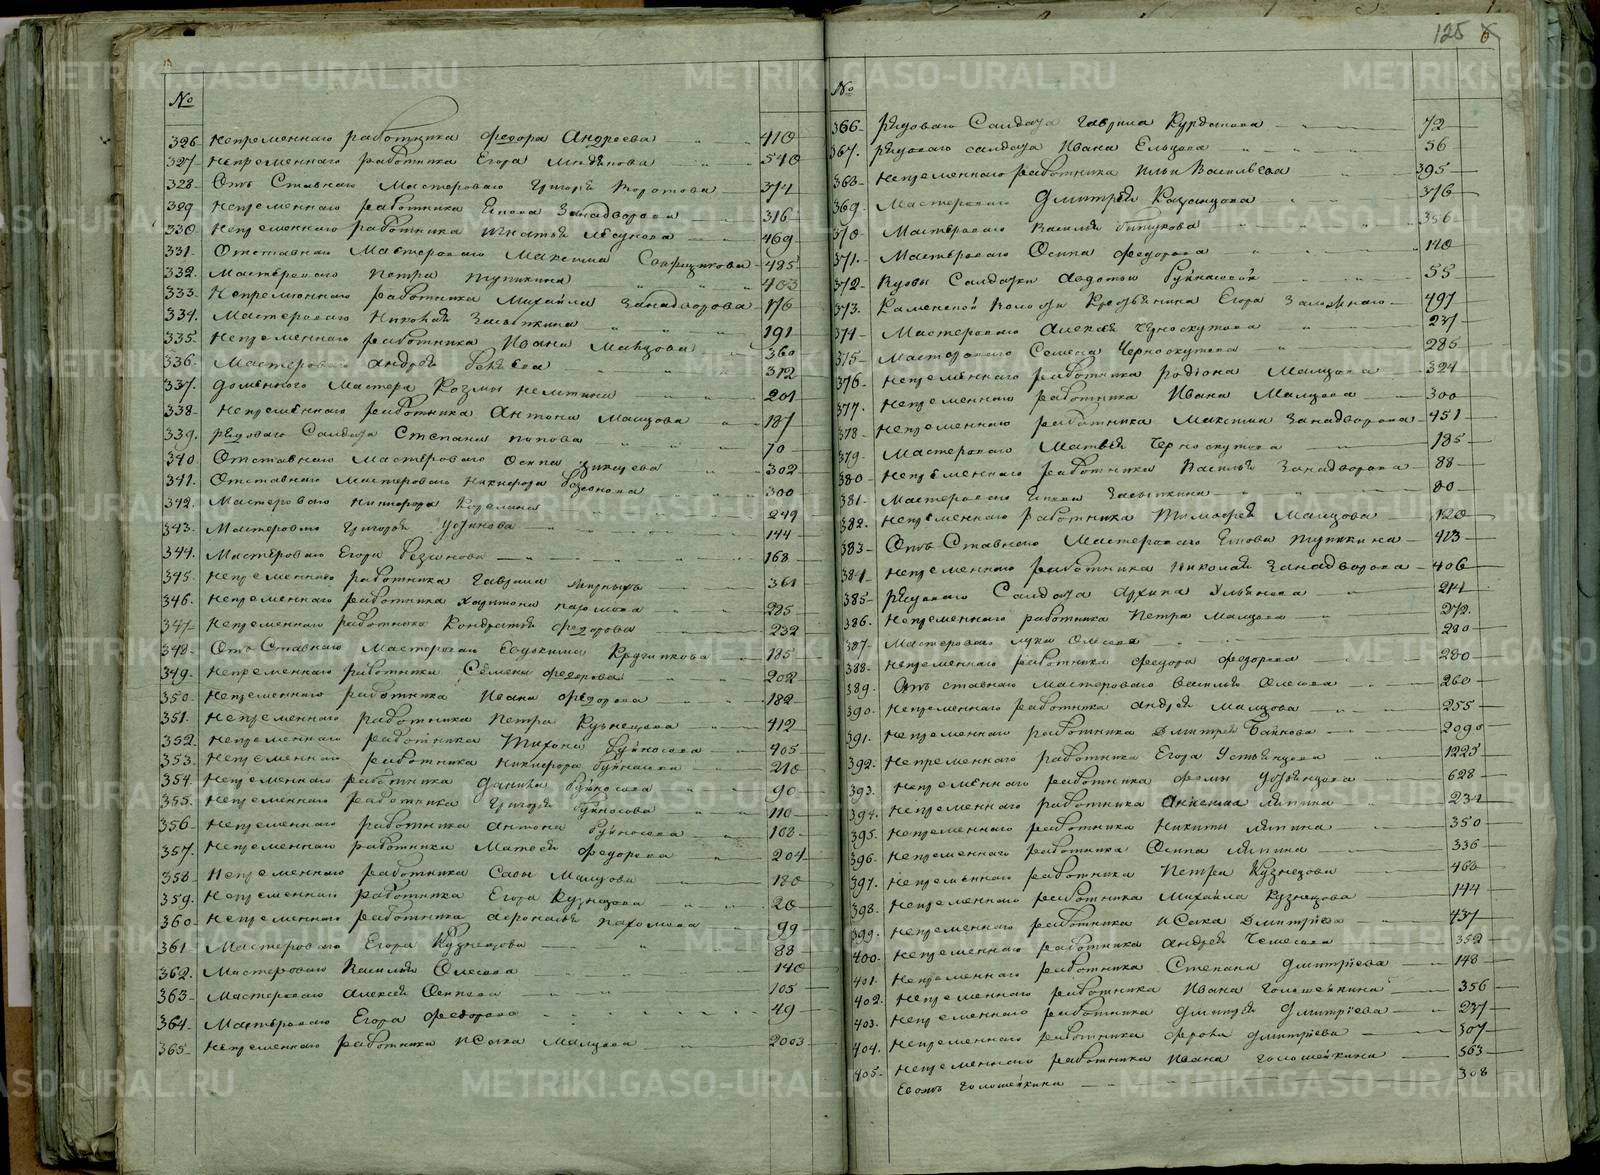 125
№
326 Непременнаго работника Федора Андреева 410
327 Непременнаго работника Егора 540
328 Отъ Ставнаго Мастероваго Григорья 374
329 Непременнаго работника Занадворова 316
330 Непременнаго работника Игнатья 469
331. Отставнаго Мастероваго Максима 485
332. Мастероваго Петра Тупикина 403
333. Непременнаго работника Михайла Занадворова 176
334. Мастероваго Николая Засыпкина 191
335. Непременнаго работника Ивана Мальцова 360
336. Мастероваго Андрея 312
337. Доменнаго Мастера Козмы 201
338 Непременнаго работника Антона Мальцова 187
339. Рядоваго Салдата Степана Попова 70
340 Отставнаго Мастероваго Осипа 302
341. Отставнаго Мастероваго Никифора 300
342. Мастероваго Никифора 249
343. Мастероваго Григорья Устинова 144
344. Мастероваго Егора Резанова 168
345. Непременнаго работника Гаврила 361
346. Непременнаго работника Харитона Пахомова 225
347. Непременнаго работника Кондратья Федорова 232
348. Отъ Ставнаго Мастероваго Евдокима 185
349. Непременнаго работника Семена Федорова 202
350. Непременнаго работника Ивана Федорова 182
351. Непременнаго работника Петра Кузнецова 412
352. Непременнаго работника Тихона Буйносова 405
353. Непременнаго работника Никифора Буйносова 210
354. Непременнаго работника Данила Буйносова 90
355. Непременнаго работника Григорья Буйносова 110
356 Непременнаго работника Антона Буйносова 108
357. Непременнаго работника Матвея Федорова 204
358 Непременнаго работника Савы Мальцова 180
359. Непременнаго работника Егора Кузнецова 20
360 Непременнаго работника Афонасья Пахомова 99
361 Мастероваго Егора Кузнецова 88
362. Мастероваго Василья Олесова 140
363. Мастероваго Алексея Осипова 105
364. Мастероваго Егора Федорова 49
365. Непременнаго работника Исака Мальцова 2003
№
366. Рядоваго Салдата Гаврила 72
367. Рядоваго Салдата Ивана Ельцова 56
368. Непременнаго работника Ильи Васильева 395
369. Мастероваго Дмитрея Казанцова 376
370 Мастероваго Василья 356
371. Мастероваго Осипа Федорова 110
372. Вдовы Салдатки Авдотьи Буйносовой 55
373. Каменской Волости Крестьянина Егора 497
374 Мастероваго Алексея Черноскутова 237
375 Мастероваго Семена Черноскутова 285
376. Непременнаго работника Родiона Мальцова 324
377. Непременнаго работника Ивана Мальцова 300
378. Непременнаго работника Максима Занадворова 451
379. Мастероваго Матвея Черноскутова 185
380. Непременнаго работника Василья Занадворова 88
381. Мастероваго Засыпкина 80
382. Непременнаго работника Тимофея Мальцова 120
383. Отъ Ставнаго Мастероваго Тупикина 413
384 Непременнаго работника Николая Занадворова 406
385. Рядоваго Салдата Архипа Ульянова 214
386. Непременнаго работника Петра Мальцова 272.
387. Мастероваго Луки Олесова 280
388. Непременнаго работника Федора Федорова 280
389. Отъ ставнаго Мастероваго Василья Олесова 260
390. Непременнаго работника Андрея Мальцова 255
391. Непременнаго работника Дмитрея 2090
392. Непременнаго работника Егора Устьянцова 1225
393. Непременнаго работника Фомы Устьянцова 628
394. Непременнаго работника Ляпина 234
395. Непременнаго работника Никиты Ляпина 350
396. Непременнаго работника Осипа Ляпина 336
397. Непременнаго работника Петра Кузнецова 460
398. Непременнаго работника Михайла Кузнецова 144
399. Непременнаго работника Исака Дмитрiева 437
400. Непременнаго работника Андрея 352
401. Непременнаго работника Степана Дмитрiева 148
402. Непременнаго работника Ивана Голошейкина 356
403. Непременнаго работника Дмитрея Дмитрiева 237
404. Непременнаго работника Фрола Дмитрiева 307
405. Непременнаго работника Ивана Голошейкина 563
Голошейкина 308
METRIKI.GASO-URAL.RU